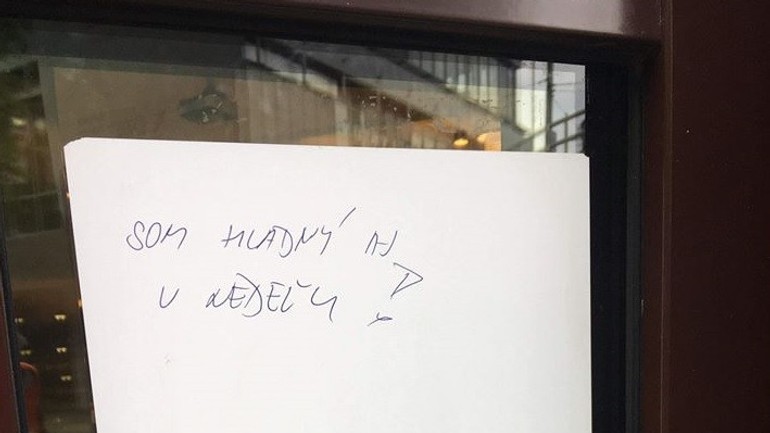 SOM HLADNÝ AJ
V NEDEĽU !